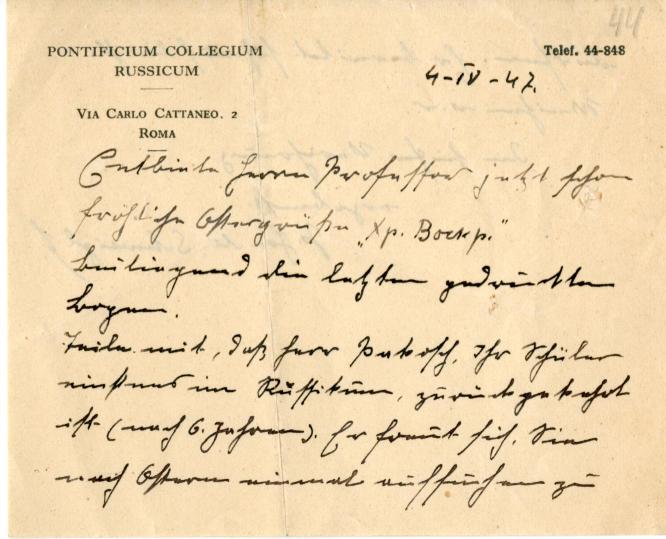 44
PONTIFICIUM COLLEGIUM
RUSSICUM
Telef. 44-848
4-IV-47.
VIA CARLO CATTANEO. 2
ROMA
Entbiete Herrn Professor jetzt schon
fröhliche Ostergrüße „Хр. Воскр."
Beiliegend die letzten gedruckten
Bogen.
Teile mit, daß Herr , Ihr Schüler
einstens im Russikum, zurückgekehrt
ist (nach 6. Jahren). Er freut sich, Sie
nach Ostern einmal aufsuchen zu